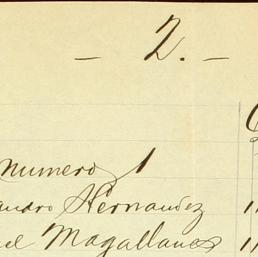 - 2. -
numero 1
andro Hernandez 1
uel Magallanes 1